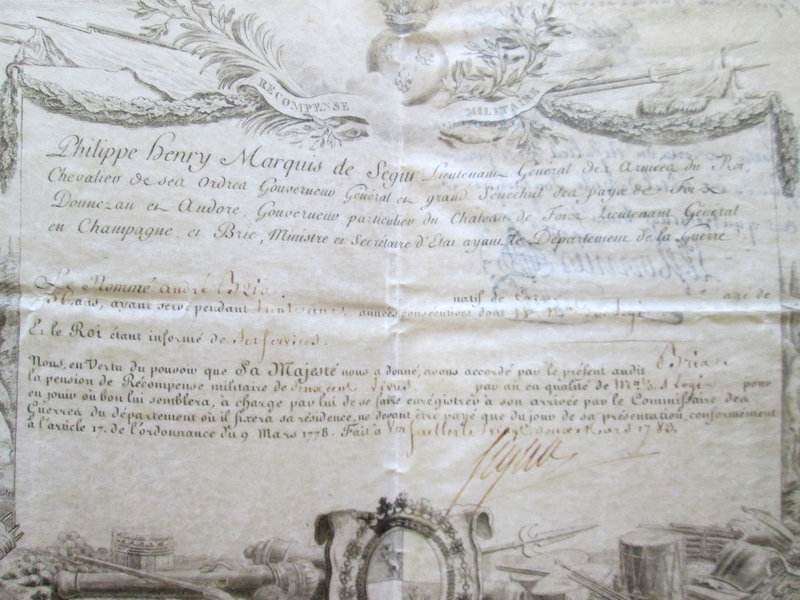 RECOMPENSE MILITAIRE
Philippe henry Marquis de Segur Lieutenant Général des Armées du Roi,
Chevalier de ses Ordres Gouverneur Général et grand Sénéchal des pays de Foix
Donnezan et Andore, Gouverneur particulier du Chateau de Foix Lieutenant Général
en Champagne et Brie, Ministre et Secrétaire d'Etat ayant le Département de la Guerre
Le Nommé andré Brias natif de agé de
ans, ayant servi pendant années consécutives dont
Et le Roi étant informé de ses services.
Nous, en Vertu du pouvoir que Sa Majesté nous a donné, avons accordé par le présent audit Brias
la pension de Récompense militaire de livres par an en qualité de Mal. d. Logis pour
en jouir où bon lui semblera, à charge par lui de se faire enregistrer à son arrivée par le Commissaire des
Guerres du département où il fixera sa résidence, ne devant être payé que du jour de sa présentation, conformément
à l'article 17. de l'ordonnance du 9 Mars 1778. Fait à Versailles le vingt deux Mars 1783.
Segur